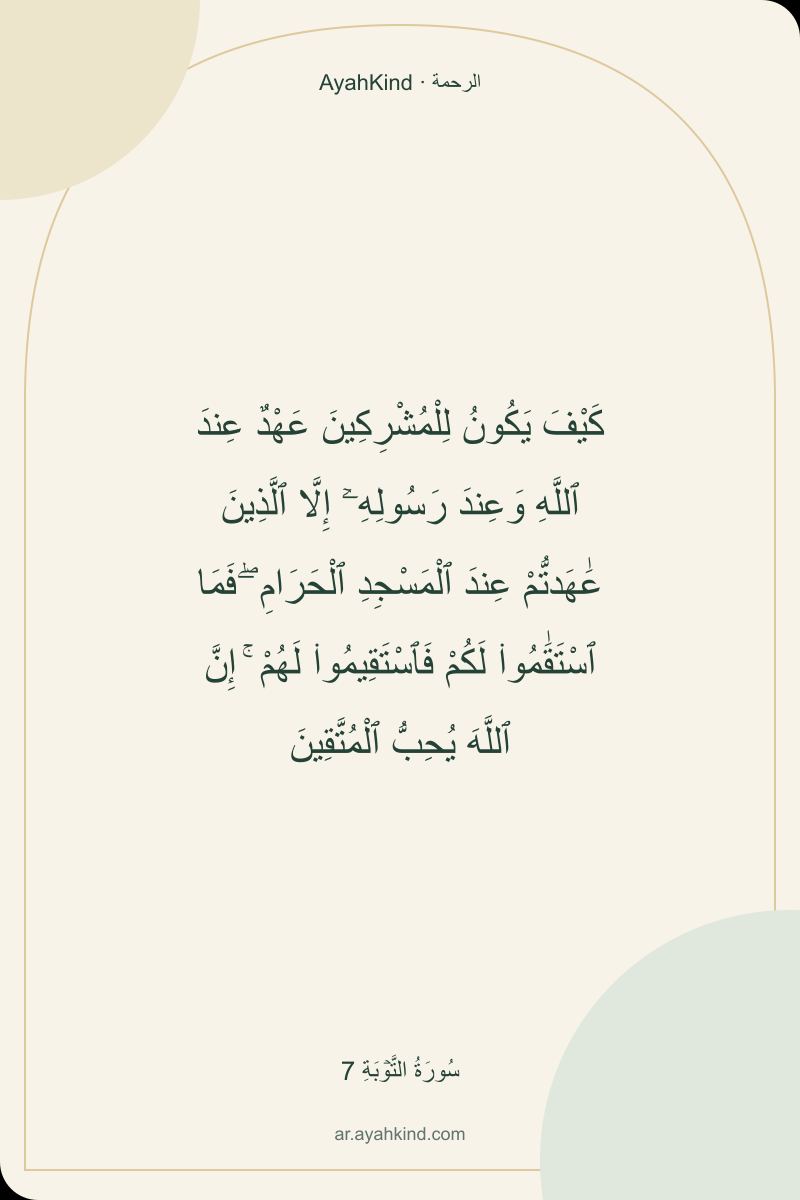 AyahKind · الرحمة
كَيْفَ يَكُونُ لِلْمُشْرِكِينَ عَهْدٌ عِندَ
ٱللَّهِ وَعِندَ رَسُولِهِۦٓ إِلَّا ٱلَّذِينَ
عَٰهَدتُّمْ عِندَ ٱلْمَسْجِدِ ٱلْحَرَامِ ۖ فَمَا
ٱسْتَقَٰمُوا۟ لَكُمْ فَٱسْتَقِيمُوا۟ لَهُمْ ۚ إِنَّ
ٱللَّهَ يُحِبُّ ٱلْمُتَّقِينَ
سُورَةُ التَّوۡبَةِ 7
ar.ayahkind.com